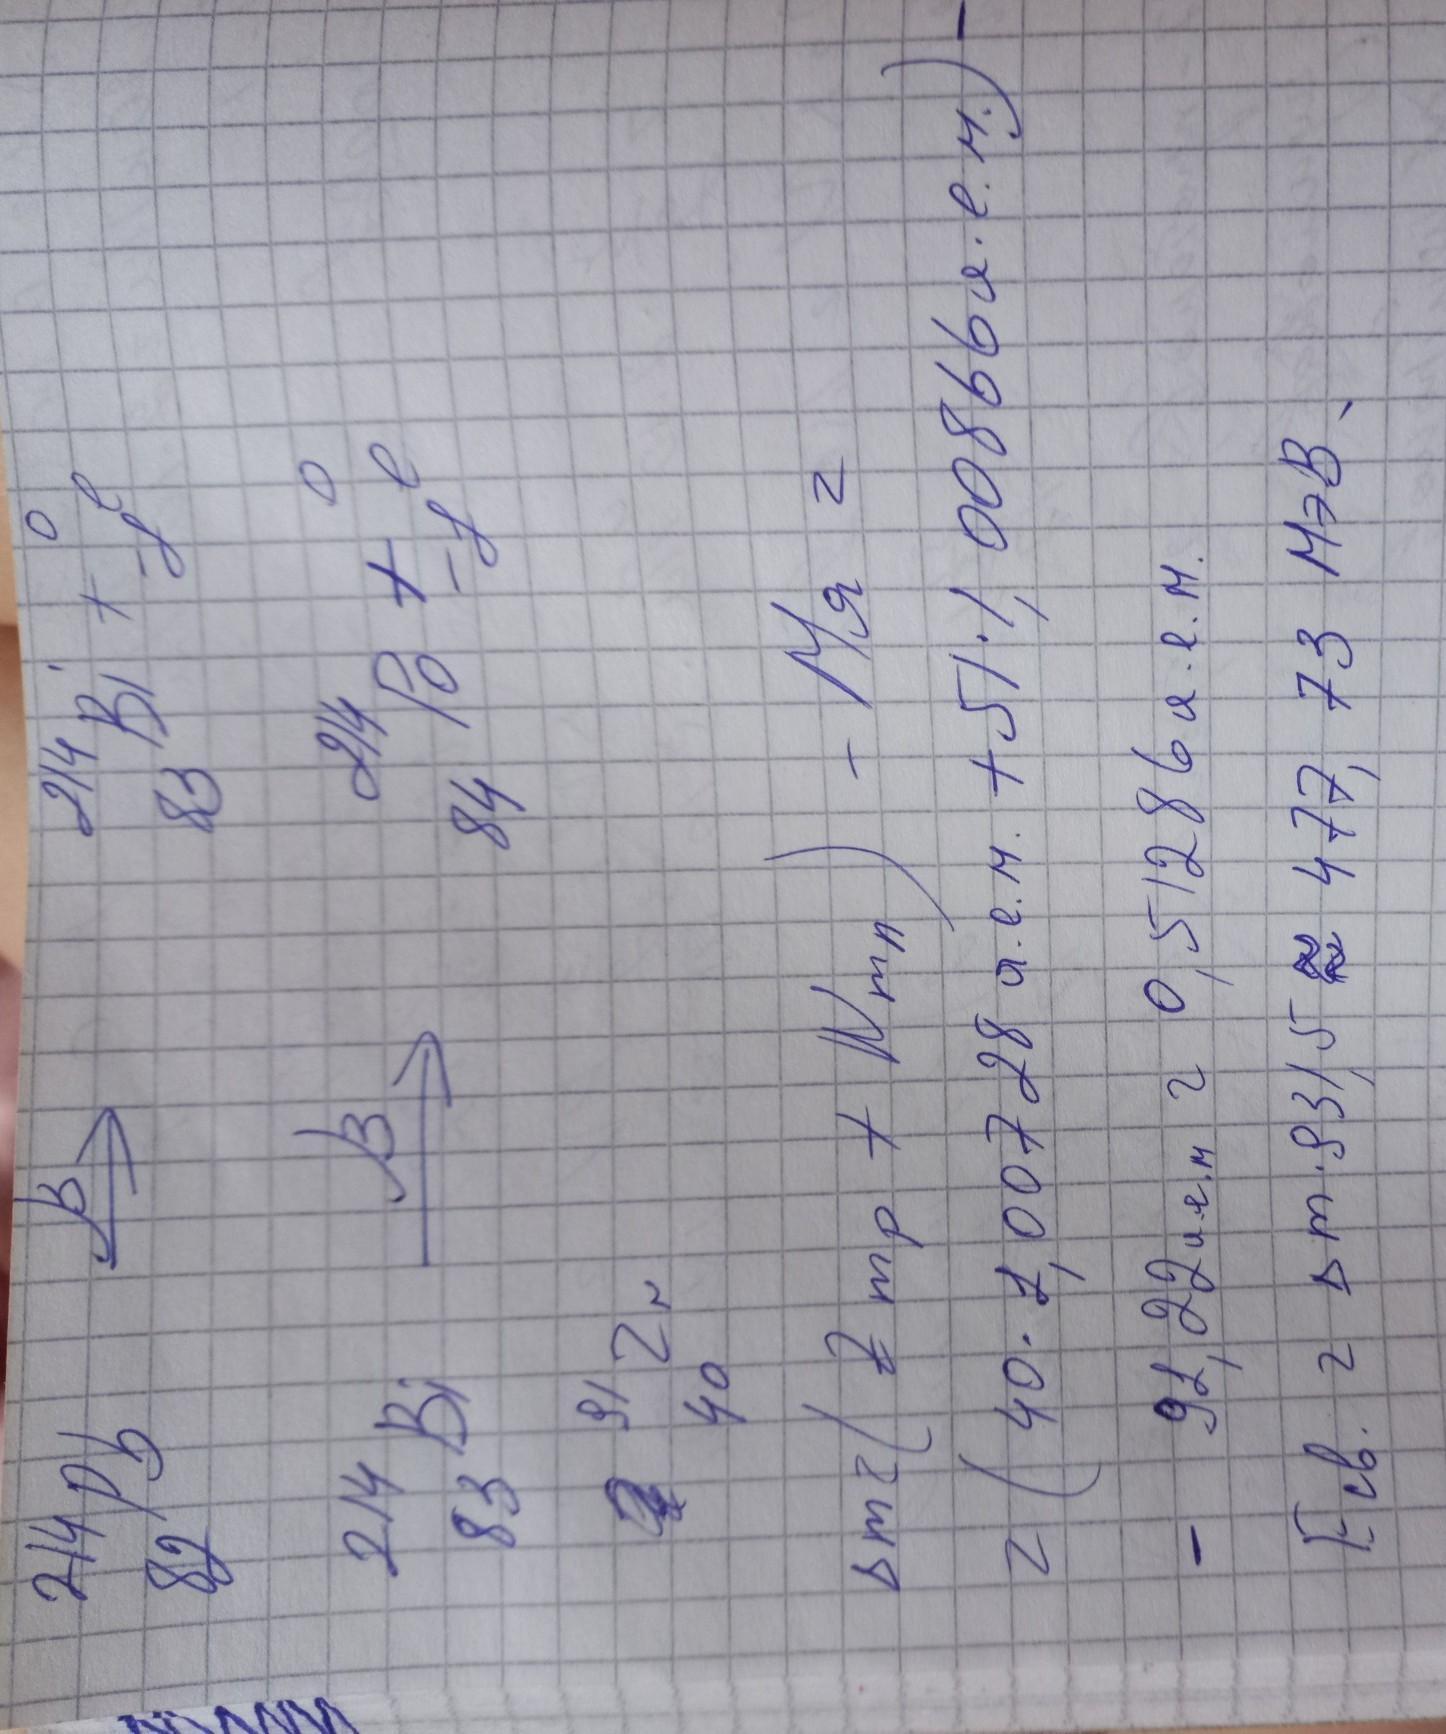 ²¹⁴₈₂Pb →β ²¹⁴₈₃Bi + ⁰₋₁e
²¹⁴₈₃Bi →β ²¹⁴₈₄Po + ⁰₋₁e
⁹¹₄₀Zr
Δm = (Z mp + N mn) - Mя =
= (40 · 1,00728 а.е.м. + 51 · 1,00866 а.е.м.) -
- 91,22 а.е.м = 0,51286 а.е.м.
Eсв. = Δm · 931,5 ≈ 477,73 МэВ.